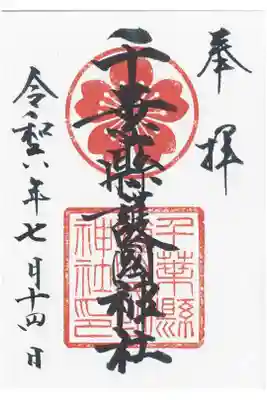 奉拝
千葉縣護國神社
千葉縣護國神社印
令和六年七月十四日